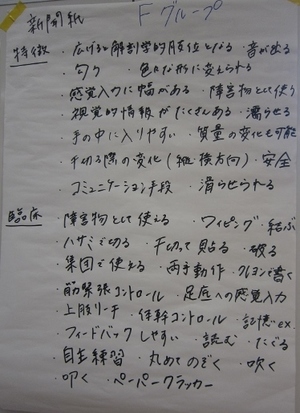 新聞紙 Fグループ
特徴 ・広げると解剖学的肢位となる ・音が出る
・匂り ・色々な形に変えられる
・感覚入力に幅がある ・障害物として使う
・視覚的情報がたくさんある ・濡らせる
・手の中に入りやすい ・質量の変化も可能
・千切る際の変化(縦・横方向) ・安全
・コミュニケーション手段 ・滑らせられる
臨床 ・障害物として使える ・ワイピング ・結ぶ
・ハサミで切る ・千切って貼る ・破る
・集団で使える ・両手動作 ・クレヨンで書く
・筋緊張コントロール ・足底への感覚入力
・上肢リーチ ・体幹コントロール ・記憶ex
・フィードバックしやすい ・読む ・たぐる
・自主練習 ・丸めてのぞく ・吹く
・叩く ・ペーパークラッカー